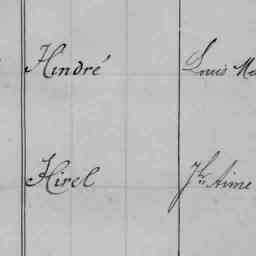 Hindré Louis Ma
Hirel Jh Aimé